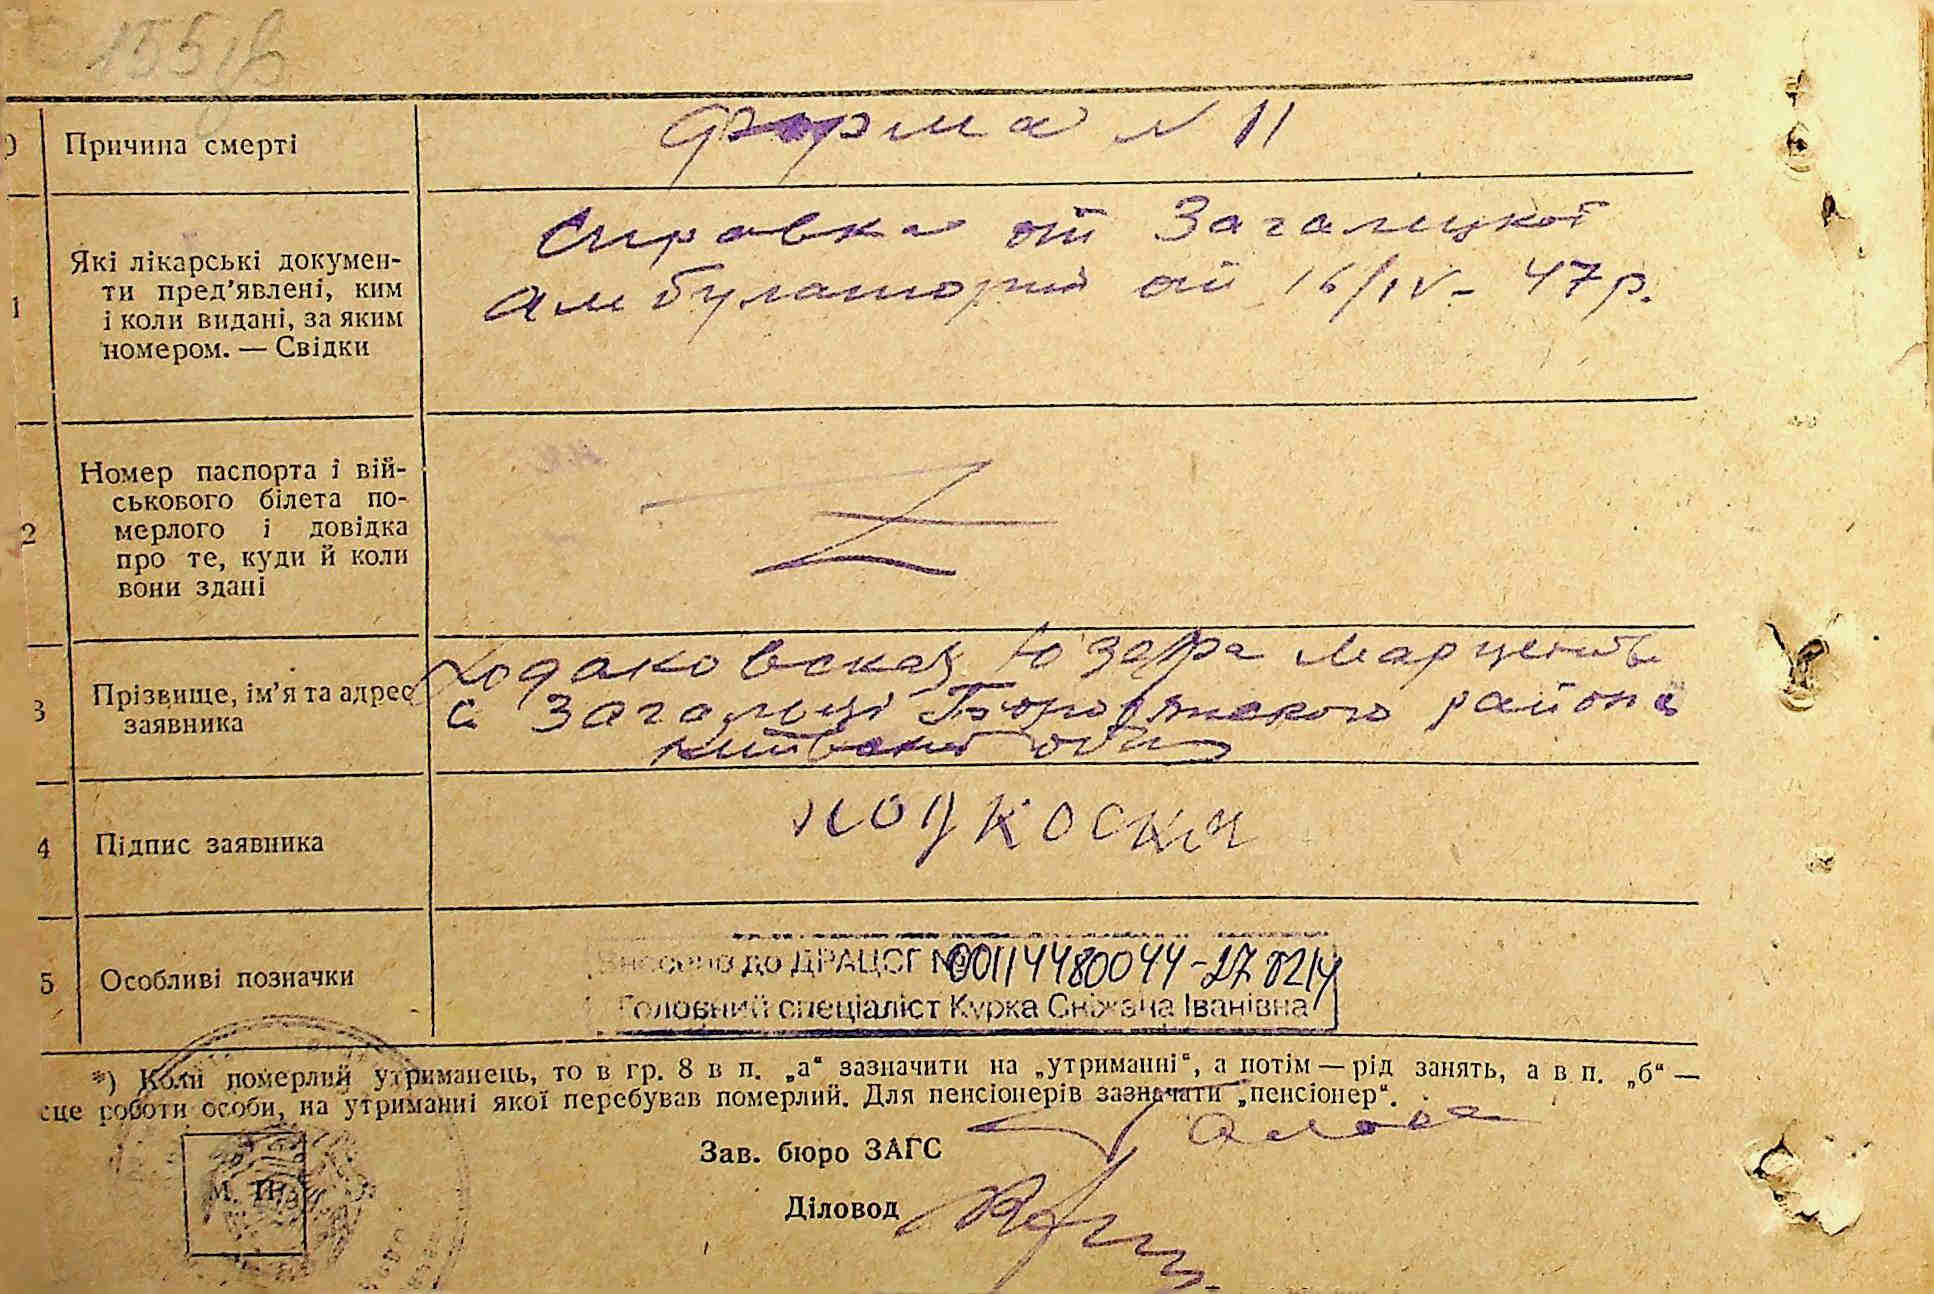 155
Причина смерті
форма N 11
Які лікарські докумен-
ти пред'явлені, ким
і коли видані, за яким
номером. — Свідки
Справка от Загалецкой
амбулаторий от 16/IV- 47 р.
Номер паспорта і вій-
ськового білета по-
мерлого і довідка
про те, куди й коли
вони здані
2
Прізвище, ім'я та адрес
заявника
3
Ходаковская Юзефа Марценовн
с Загальці Бородянского района
Київской обл
4
Підпис заявника
5
Особливі позначки
Внесено до ДРАЦСГ № 00114480044-27 0214
Головний спеціаліст Курка Сніжана Іванівна
*) Коли померлий утриманець, то в гр. 8 в п. „а“ зазначити на „утриманні“, а потім — рід занять, а в п. „б“ —
сце роботи особи, на утриманні якої перебував померлий. Для пенсіонерів зазначати „пенсіонер“.
Зав. бюро ЗАГС
М. П.
Діловод